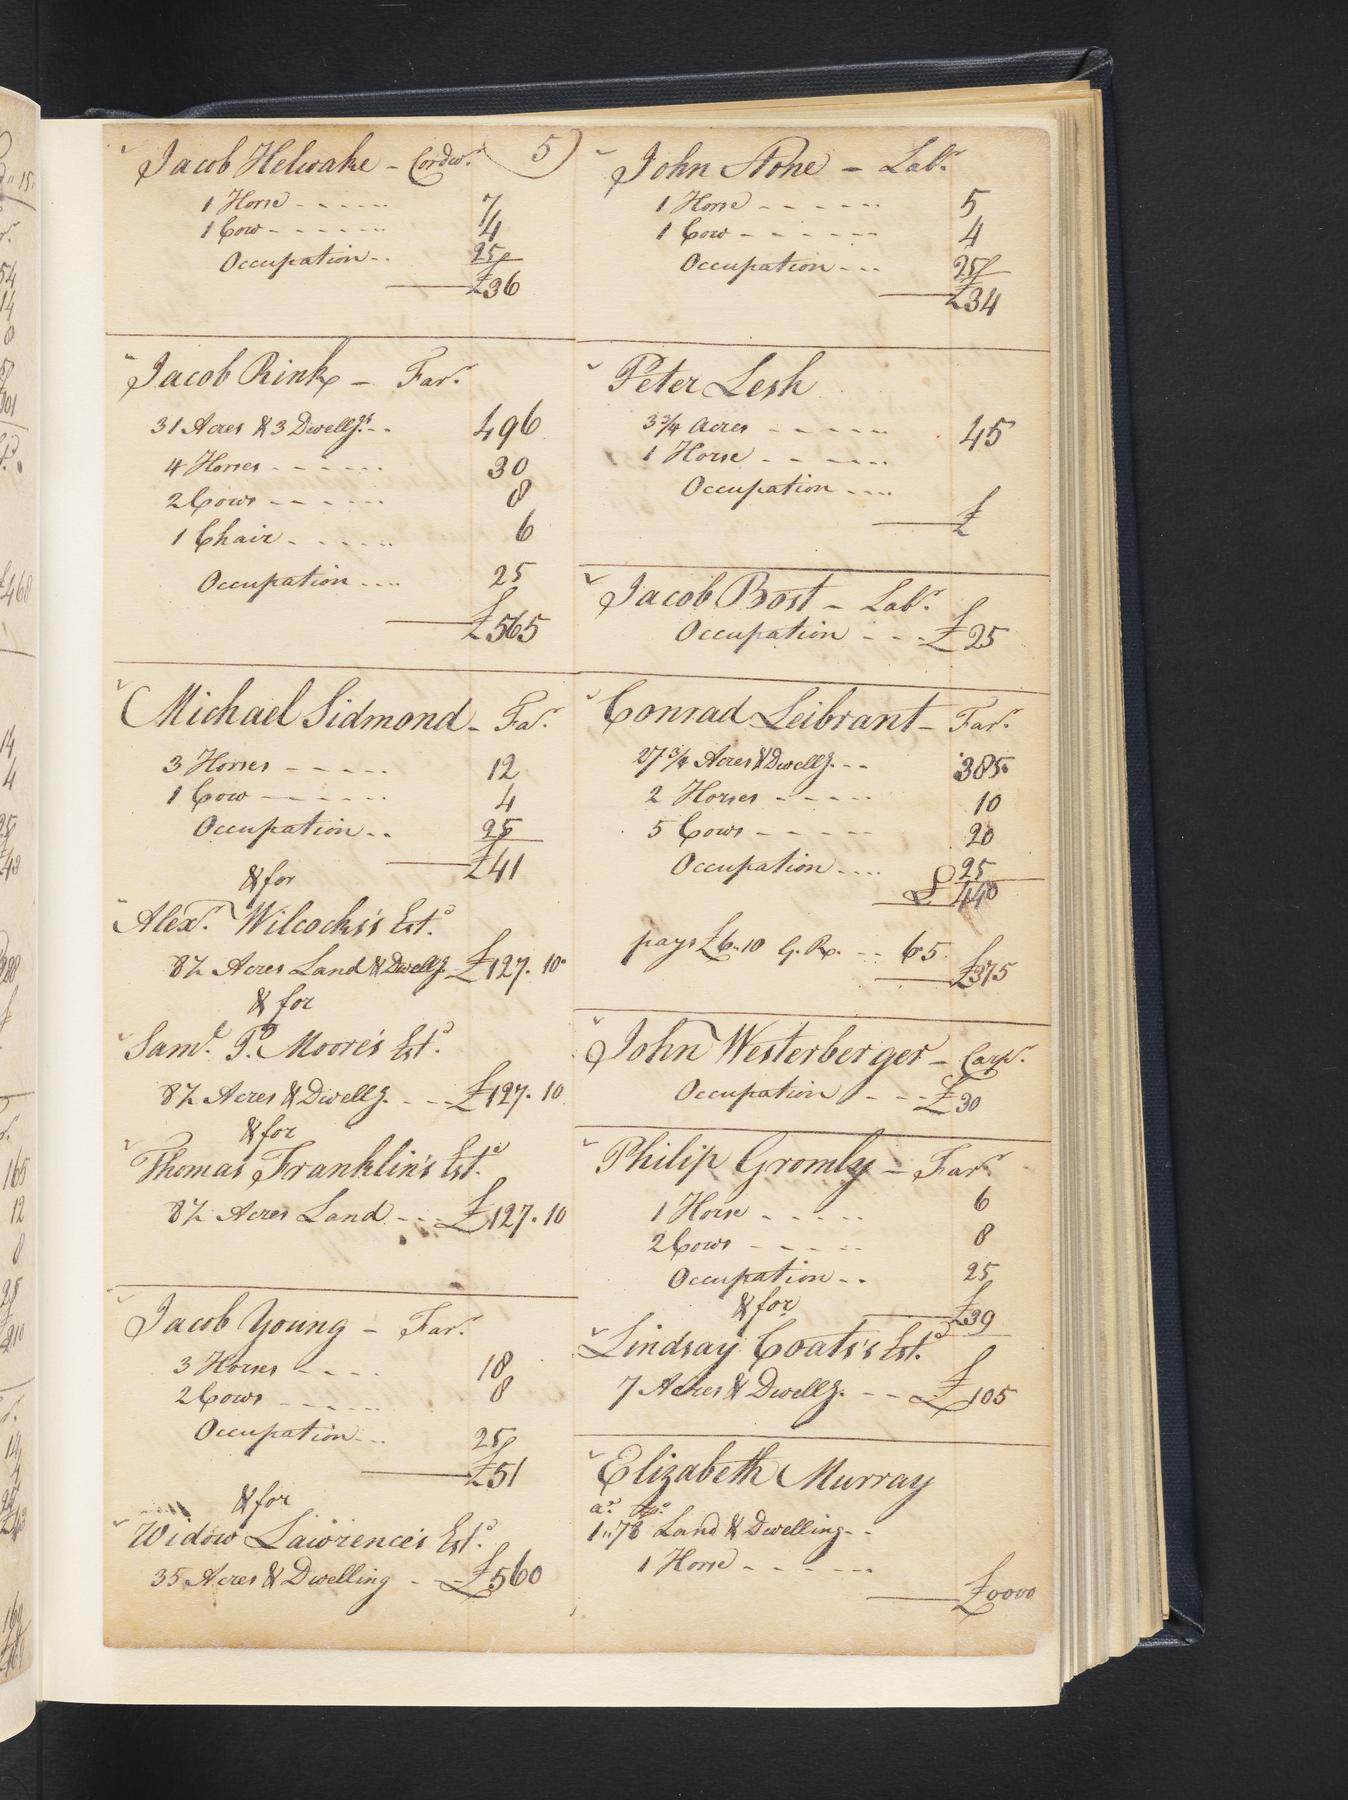 5
Jacob Helwake – Cordwr.
1 Horse - - - - - - 7
1 Cow - - - - - - 4
Occupation - - 25
£36
Jacob Rink – Far.
31 Acres & 3 Dwellgs. - - 496
4 Horses - - - - - - 30
2 Cows - - - - - - 8
1 Chair - - - - - - 6
Occupation - - - - 25
£565
Michael Sidmond – Far.
3 Horses - - - - - 12
1 Cow - - - - - - 4
Occupation - - 25
£41
& for
Alexr. Wilcocks's Estd.
8½ Acres Land & Dwellg. £127. 10
& for
Saml. P. Moore's Estd.
8½ Acres & Dwellg. - - - £127. 10
& for
Thomas Franklin's Estd.
8½ Acres Land - - - £127. 10
Jacob Young – Far.
3 Horses - - - - 18
2 Cows - - - - - - 8
Occupation - - - 25
£51
& for
Widow Lawrence's Estd.
35 Acres & Dwelling - - £560
John Stone – Labr.
1 Horse - - - - - - 5
1 Cow - - - - - - 4
Occupation - - - 25
£34
Peter Lesh
3¾ Acres - - - - - - 45
1 Horse - - - - - -
Occupation - - - -
£
Jacob Bost – Labr.
Occupation - - - £25
Conrad Leibrant – Far.
27¾ Acres & Dwellg. - - - 385
2 Horses - - - - - 10
5 Cows - - - - - - 20
Occupation - - - - 25
£440
pays £6..10 G. R. - - 65
£375
John Westerberger – Carpr.
Occupation - - - £30
Philip Gromly – Far.
1 Horse - - - - - 6
2 Cows - - - - - - 8
Occupation - - 25
& for £39
Lindsay Coats's Estd.
7 Acres & Dwellg. - - - £105
Elizabeth Murray
as. ps.
1..78 Land & Dwelling - -
1 Horse - - - - - -
£0000